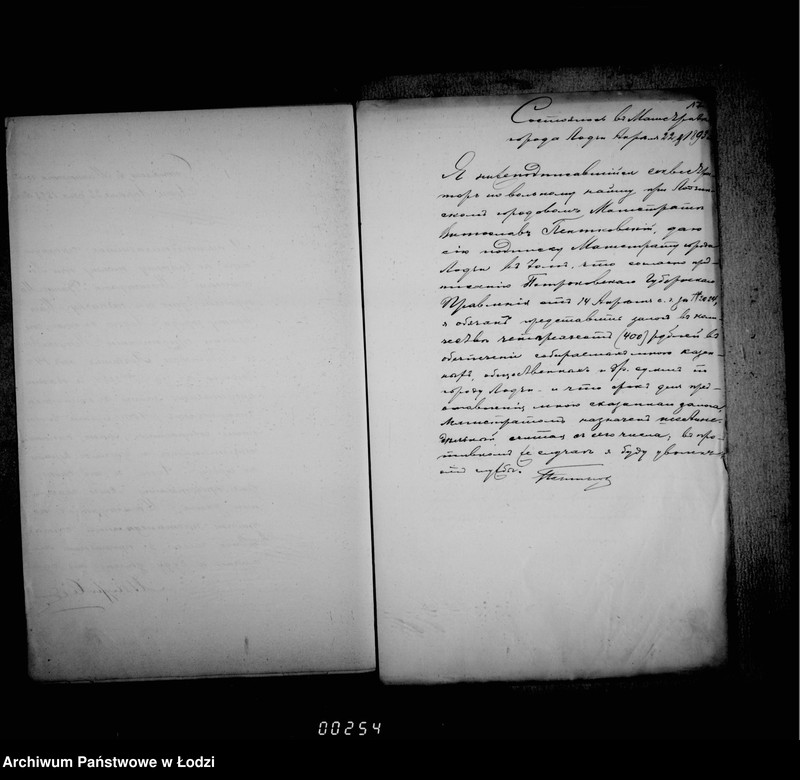 Состоялся въ Магистратѣ
города Лодзи Апрѣля 22 д 189
Я нижеподписавшійся
по вольному найму при Лодзин-
скомъ городовомъ Магистратѣ
Пентковскій, даю
сію подписку Магистрату города
Лодзи въ томъ, что согласно пред-
писанію Петроковскаго Губернскаго
Правленія отъ 14 Апрѣля с. г. за №
я обязанъ представить залогъ въ коли-
чествѣ четырехсотъ (400) рублей въ
обезпеченіе собираемыхъ мною казен-
ныхъ, общественныхъ и др. суммъ по
городу Лодзи и что срокъ для пред-
ставленія мною сказаннаго залога,
Магистратомъ назначенъ
дѣльный считая съ сего числа, въ про-
тивномъ же случаѣ я буду уволенъ
отъ службы.
00254
Archiwum Państwowe w Łodzi